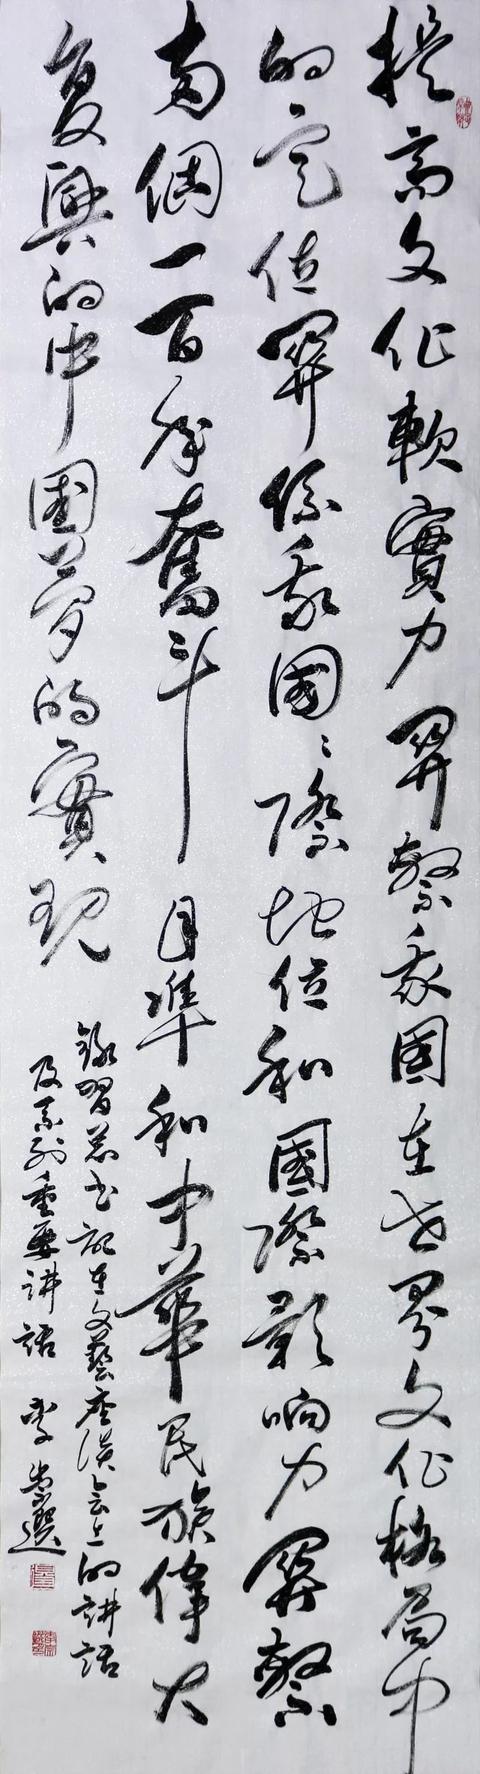 提高文化軟實力關繫我國在世界文化格局中
的定位關係我國々際地位和國際影响力關繫
两個一百年奮斗目準和中華民族偉大
复興的中國夢的實現
錄習总书記在文藝座谈会上的講話
及系列重要讲話 李崇選